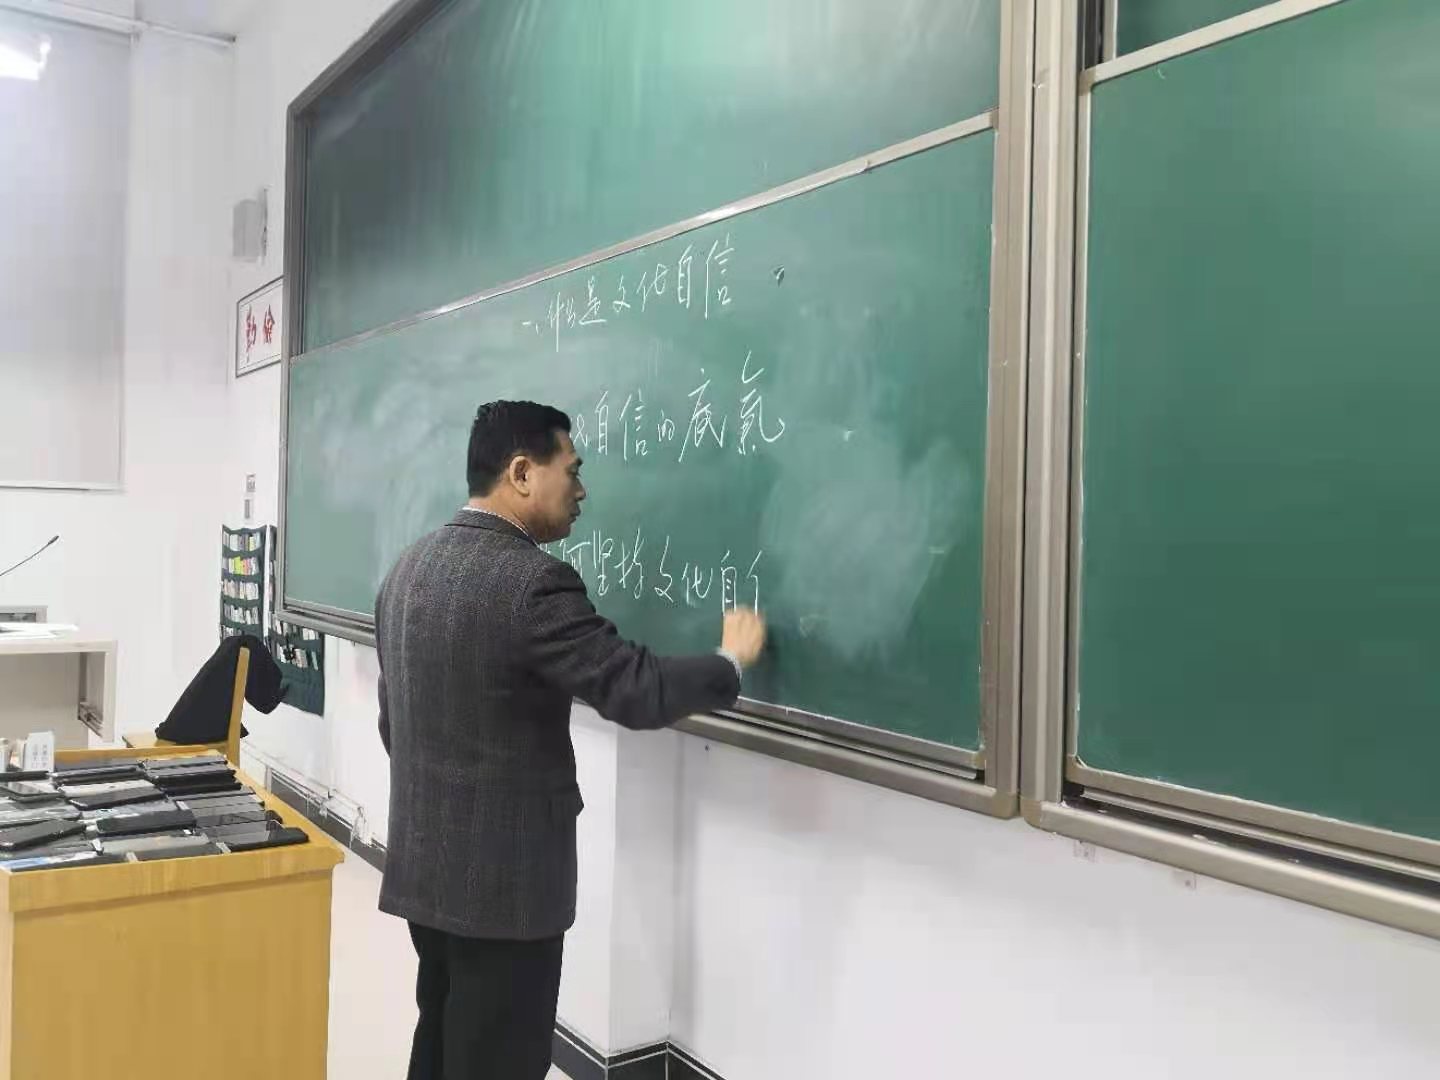 一、什么是文化自信
自信的底氣
何坚持文化自
勤 儉